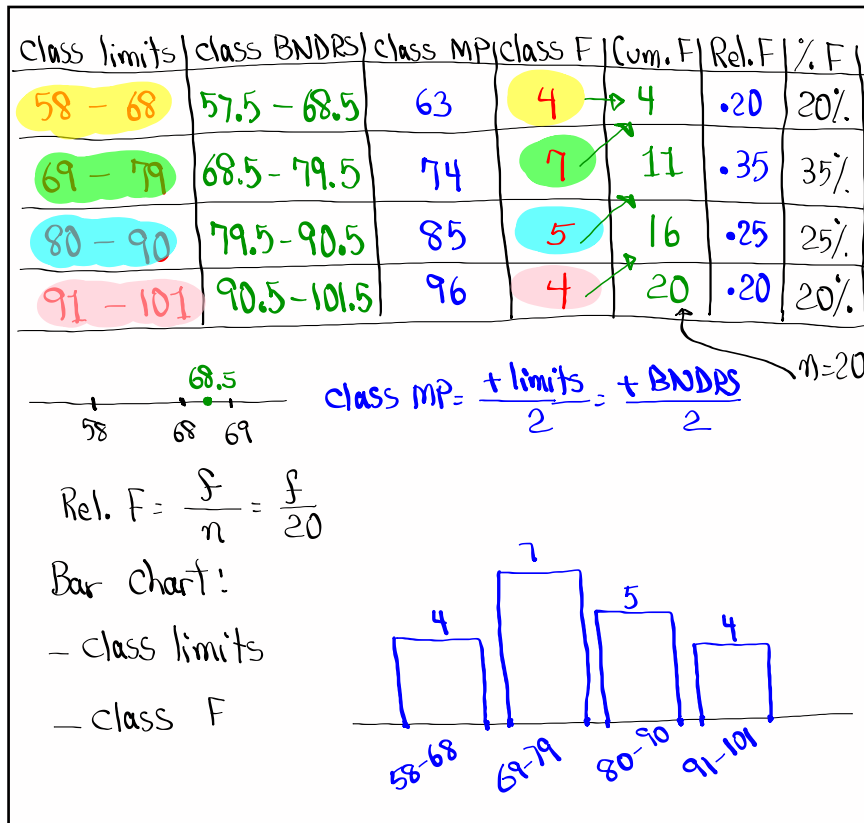 class limits class BNDRS class MP class F Cum. F Rel. F % F
58 - 68 57.5 - 68.5 63 4 4 .20 20%
69 - 79 68.5 - 79.5 74 7 11 .35 35%
80 - 90 79.5 - 90.5 85 5 16 .25 25%
91 - 101 90.5 - 101.5 96 4 20 .20 20%
n=20
68.5
58 68 69
class MP = + limits / 2 = + BNDRS / 2
Rel. F = f / n = f / 20
Bar chart:
- class limits
- class F
4 7 5 4
58-68 69-79 80-90 91-101